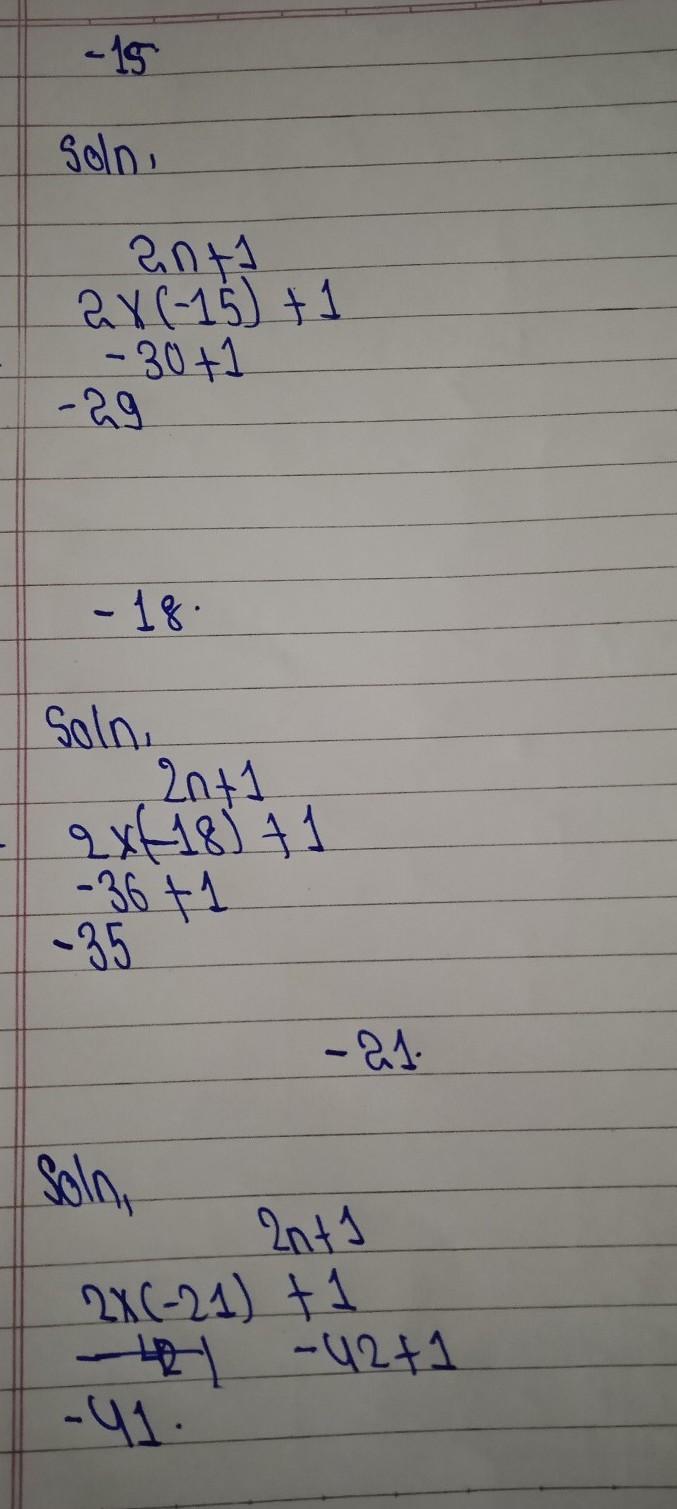 -15
Soln,
2n+1
2x(-15) +1
-30+1
-29
-18.
Soln,
2n+1
2x(-18) +1
-36 +1
-35
-21.
Soln,
2n+1
2x(-21) +1
-42+1
-41.